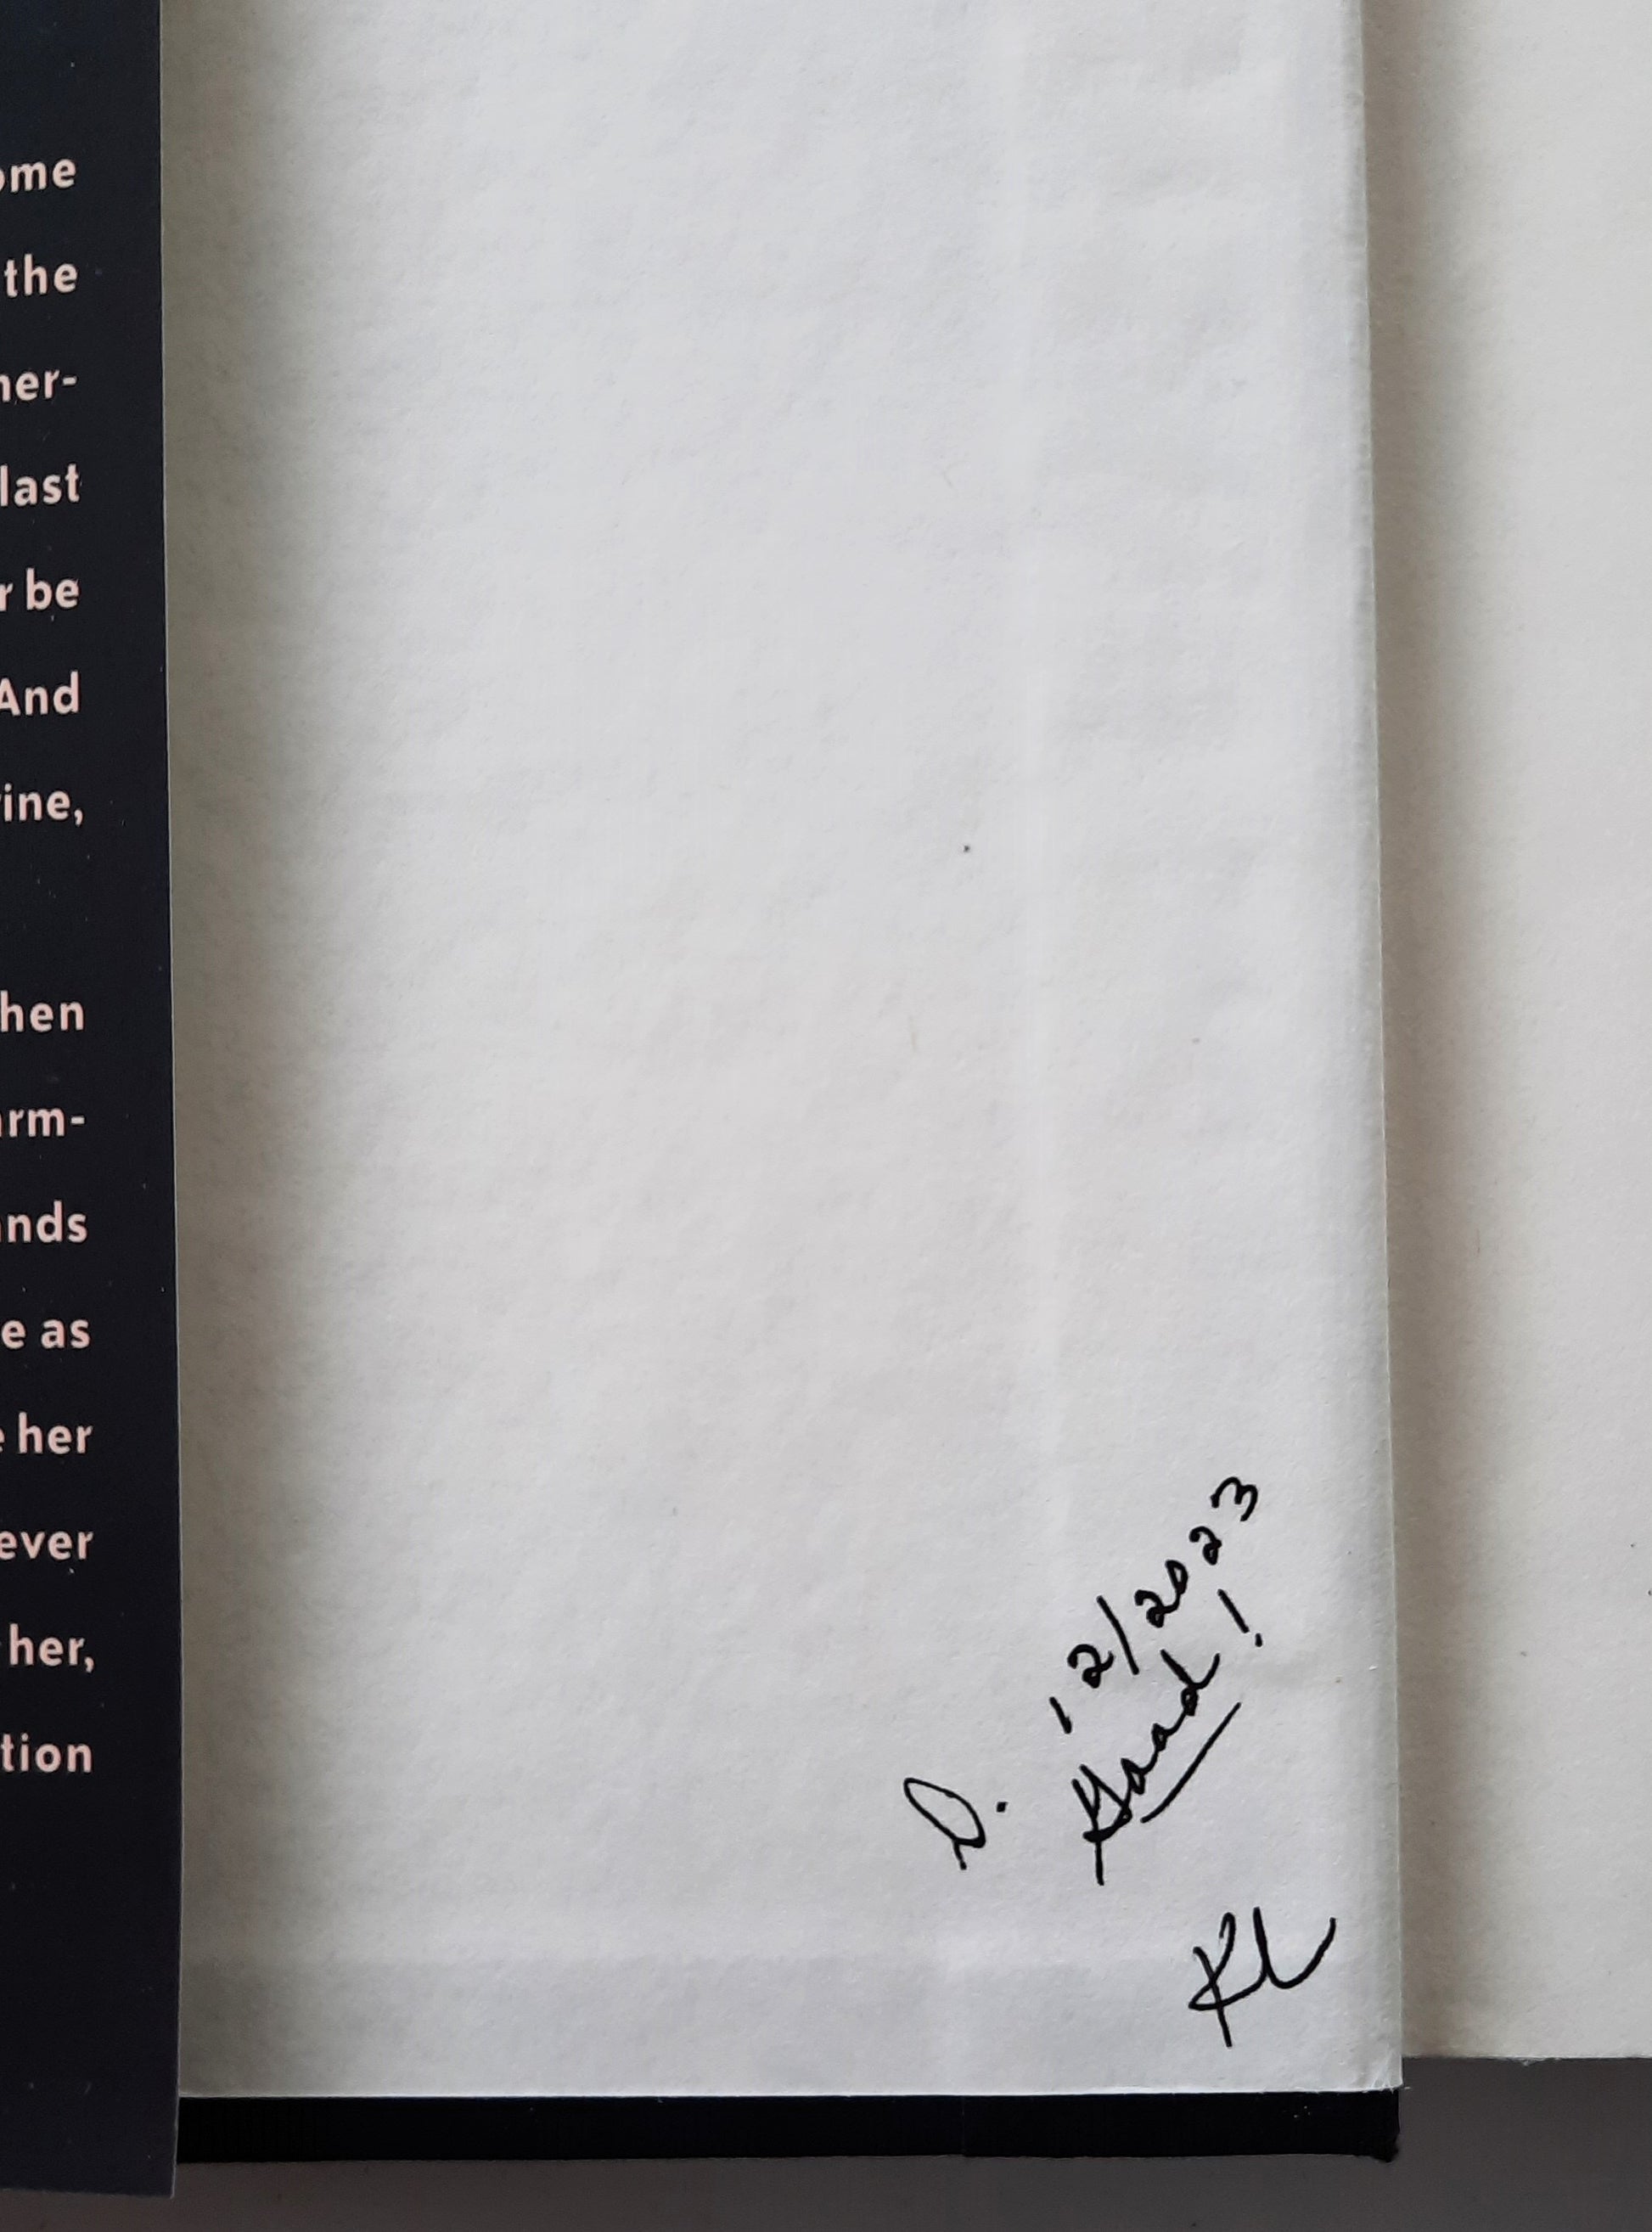 ome
the
her-
last
r be
And
rine,
hen
arm-
ands
e as
e her
ever
her,
tion
D.
12/2023
Good!
KL